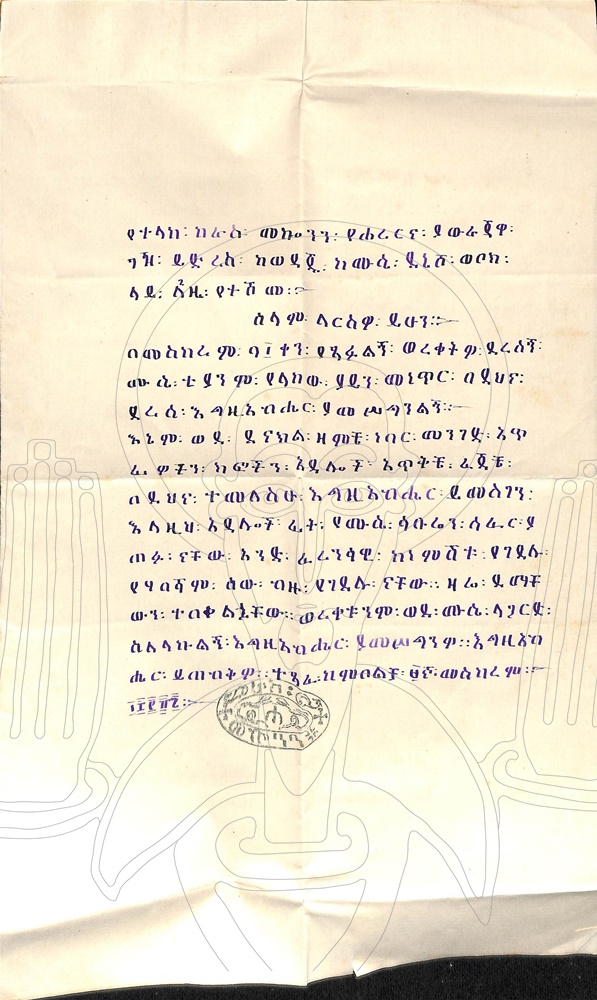 የተላከ፡ ከራስ፡ መኰንን፡ የሐረርና፡ ያውራጃዋ፡
ገዥ፡ ይድረስ፡ ከወዳጄ፡ ከሙሴ፡
የተሸመ፡፡
ሰላም፡ ለርስዎ፡ ይሁን፡፡
በመስከረም፡ በ፲ ቀን፡ የጻፉልኝ፡ ወረቀትዎ፡ ደረሰኝ፡
ሙሴ፡ የላከው፡ ያይን፡ መነጥር፡ በደህና፡
ደረሰ፡ እግዚአብሔር፡ ያመሠግንልኝ፡፡
እኔም፡ ወደ፡ ደናክል፡ ዘምቼ፡ ነበር፡ መንገድ፡ አጥ
ፊዎችን፡ ክፎችን፡ አዳሎች፡ አጥቅቼ፡ ፈጅቼ፡
በደህና፡ ተመለስሁ፡ እግዚአብሔር፡ ይመስገን፡
እለዚህ፡ አዳሎች፡ ፊት፡ የሙሴ፡ ሳቡሬን፡ ሰፈር፡ ያ
ጠፉ፡ ናቸው፡ አንድ፡ ፈረንሳዊ፡ ከነ ምሽቱ፡ የገደሉ፡
የሃበሻም፡ ሰው፡ ብዙ፡ የገደሉ፡ ናቸው፡፡ ዛሬ፡ ደማቸ
ውን፡ ተበቀልኋቸው፡፡ ወረቀቱንም፡ ወደ፡ ሙሴ፡ ላጋርድ፡
ስለላኩልኝ፡ እግዚአብሔር፡ ያመሠግንዎ፡፡ እግዚአብ
ሔር፡ ይጠብቅዎ፡፡ ተጻፈ፡ በምቦልቾ፡ መስከረም፡፡